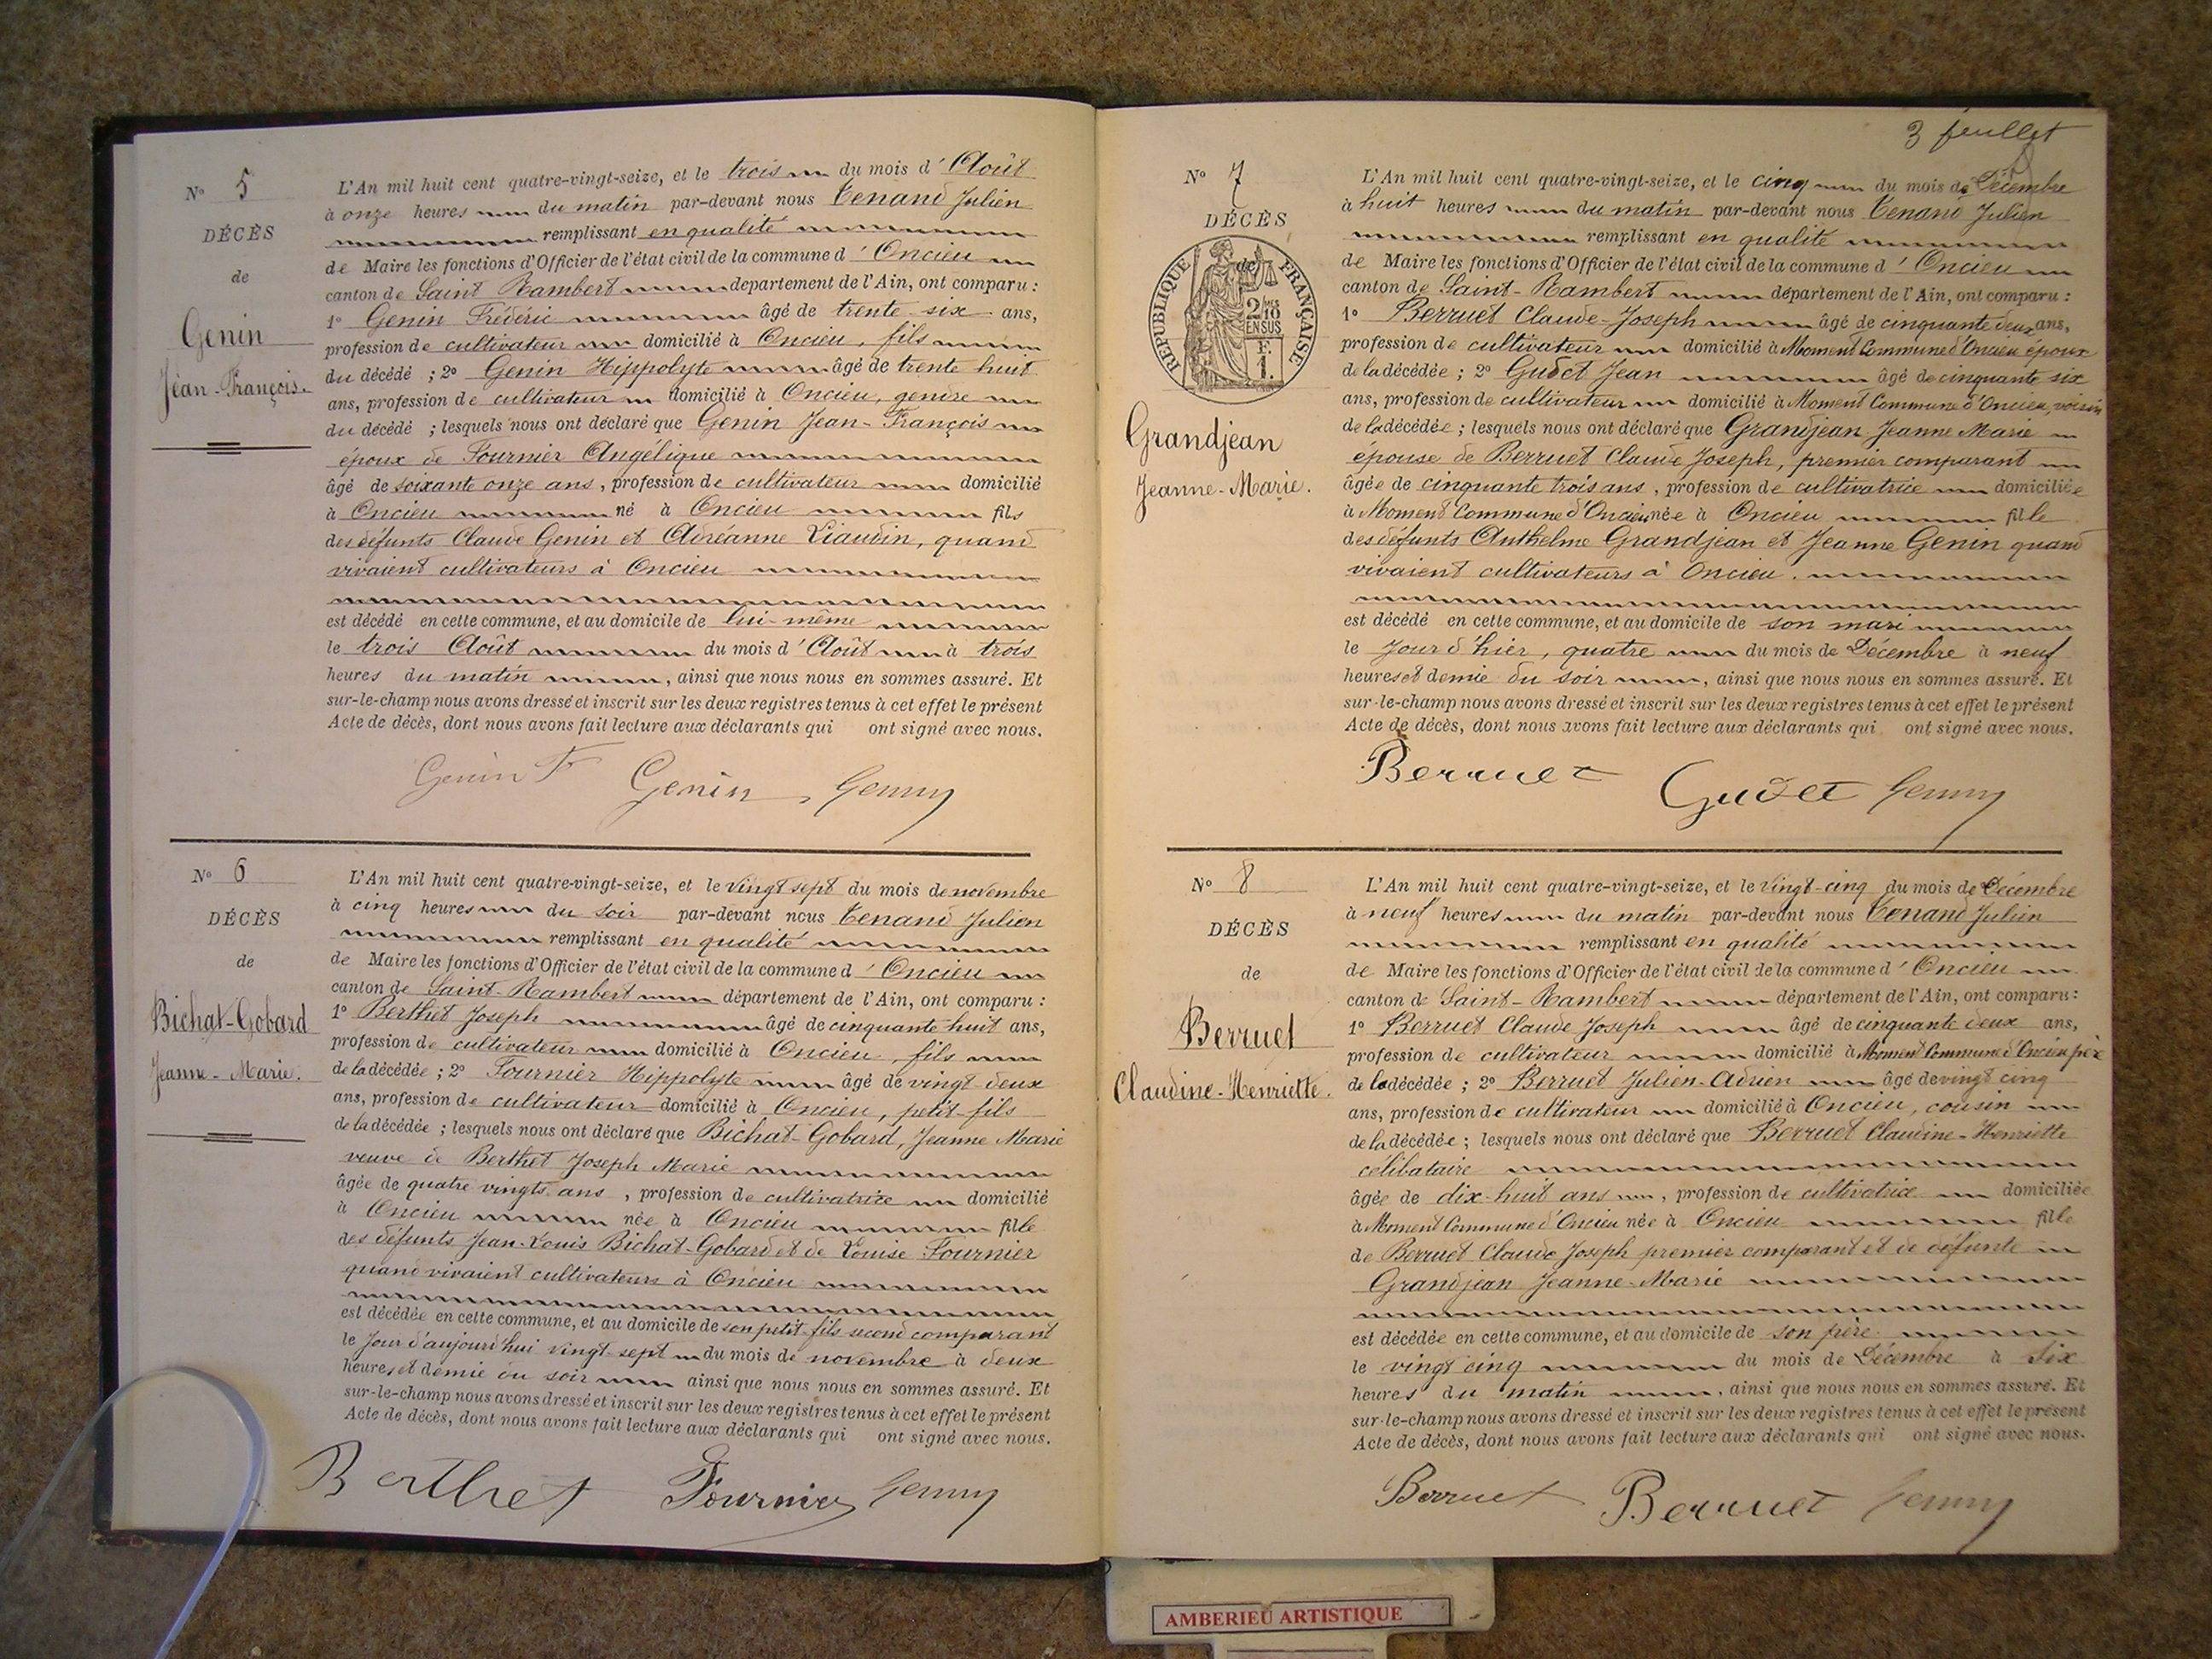 Nº 5
DÉCÈS
de
Genin
Jean-François.
L'An mil huit cent quatre-vingt-seize, et le trois du mois d'Août
à onze heures du matin par-devant nous Tenand Julien
remplissant en qualité
de Maire les fonctions d'Officier de l'état civil de la commune d'Oncieu
canton de Saint Rambert département de l'Ain, ont comparu :
1º Genin Frédéric âgé de trente-six ans,
profession de cultivateur domicilié à Oncieu, fils
du décédé ; 2º Genin Hippolyte âgé de trente huit
ans, profession de cultivateur domicilié à Oncieu, gendre
du décédé ; lesquels nous ont déclaré que Genin Jean-François
époux de Fournier Angélique
âgé de soixante onze ans, profession de cultivateur domicilié
à Oncieu né à Oncieu fils
des défunts Claude Genin et Adréanne Liaudin, quand
vivaient cultivateurs à Oncieu
est décédé en cette commune, et au domicile de lui-même
le trois Août du mois d'Août à trois
heures du matin, ainsi que nous nous en sommes assuré. Et
sur-le-champ nous avons dressé et inscrit sur les deux registres tenus à cet effet le présent
Acte de décès, dont nous avons fait lecture aux déclarants qui ont signé avec nous.
Genin F Genin
Nº 6
DÉCÈS
de
Bichat-Gobard
Jeanne-Marie.
L'An mil huit cent quatre-vingt-seize, et le vingt sept du mois de novembre
à cinq heures du soir par-devant nous Tenand Julien
remplissant en qualité
de Maire les fonctions d'Officier de l'état civil de la commune d'Oncieu
canton de Saint-Rambert département de l'Ain, ont comparu :
1º Berthet Joseph âgé de cinquante huit ans,
profession de cultivateur domicilié à Oncieu, fils
de la décédée ; 2º Fournier Hippolyte âgé de vingt deux
ans, profession de cultivateur domicilié à Oncieu, petit-fils
de la décédée ; lesquels nous ont déclaré que Bichat-Gobard, Jeanne Marie
veuve de Berthet Joseph Marie
âgée de quatre vingts ans, profession de cultivatrice domicilié
à Oncieu née à Oncieu fille
des défunts Jean-Louis Bichat-Gobard et de Louise Fournier
quand vivaient cultivateurs à Oncieu
est décédée en cette commune, et au domicile de son petit-fils second comparant
le Jour d'aujourd'hui vingt-sept du mois de novembre à deux
heures et demie du soir ainsi que nous nous en sommes assuré. Et
sur-le-champ nous avons dressé et inscrit sur les deux registres tenus à cet effet le présent
Acte de décès, dont nous avons fait lecture aux déclarants qui ont signé avec nous.
Berthet Fournier
3 feuillet
Nº 7
DÉCÈS
de
RÉPUBLIQUE FRANÇAISE
2 10 MES
EN SUS
F.
1.
Grandjean
Jeanne-Marie.
L'An mil huit cent quatre-vingt-seize, et le cinq du mois de Décembre
à huit heures du matin par-devant nous Tenand Julien
remplissant en qualité
de Maire les fonctions d'Officier de l'état civil de la commune d'Oncieu
canton de Saint-Rambert département de l'Ain, ont comparu :
1º Berruet Claude-Joseph âgé de cinquante deux ans,
profession de cultivateur domicilié à Moment Commune d'Oncieu époux
de la décédée ; 2º Gudet Jean âgé de cinquante six
ans, profession de cultivateur domicilié à Moment Commune d'Oncieu, voisin
de la décédée ; lesquels nous ont déclaré que Grandjean Jeanne Marie
épouse de Berruet Claude Joseph, premier comparant
âgée de cinquante trois ans, profession de cultivatrice domiciliée
à Moment Commune d'Oncieu née à Oncieu fille
des défunts Anthelme Grandjean et Jeanne Genin quand
vivaient cultivateurs à Oncieu.
est décédé en cette commune, et au domicile de son mari
le Jour d'hier, quatre du mois de Décembre à neuf
heures et demie du soir, ainsi que nous nous en sommes assuré. Et
sur-le-champ nous avons dressé et inscrit sur les deux registres tenus à cet effet le présent
Acte de décès, dont nous avons fait lecture aux déclarants qui ont signé avec nous.
Berruet Gudet
Nº 8
DÉCÈS
de
Berruet
Claudine-Henriette.
L'An mil huit cent quatre-vingt-seize, et le vingt-cinq du mois de Décembre
à neuf heures du matin par-devant nous Tenand Julien
remplissant en qualité
de Maire les fonctions d'Officier de l'état civil de la commune d'Oncieu
canton de Saint-Rambert département de l'Ain, ont comparu :
1º Berruet Claude Joseph âgé de cinquante deux ans,
profession de cultivateur domicilié à Moment Commune d'Oncieu père
de la décédée ; 2º Berruet Julien-Adrien âgé de vingt cinq
ans, profession de cultivateur domicilié à Oncieu, cousin
de la décédée ; lesquels nous ont déclaré que Berruet Claudine-Henriette
célibataire
âgée de dix-huit ans, profession de cultivatrice domiciliée
à Moment Commune d'Oncieu née à Oncieu fille
de Berruet Claude Joseph premier comparant et de défunte
Grandjean Jeanne-Marie
est décédée en cette commune, et au domicile de son père
le vingt cinq du mois de Décembre à six
heures du matin, ainsi que nous nous en sommes assuré. Et
sur-le-champ nous avons dressé et inscrit sur les deux registres tenus à cet effet le présent
Acte de décès, dont nous avons fait lecture aux déclarants qui ont signé avec nous.
Berruet Berruet
AMBERIEU ARTISTIQUE